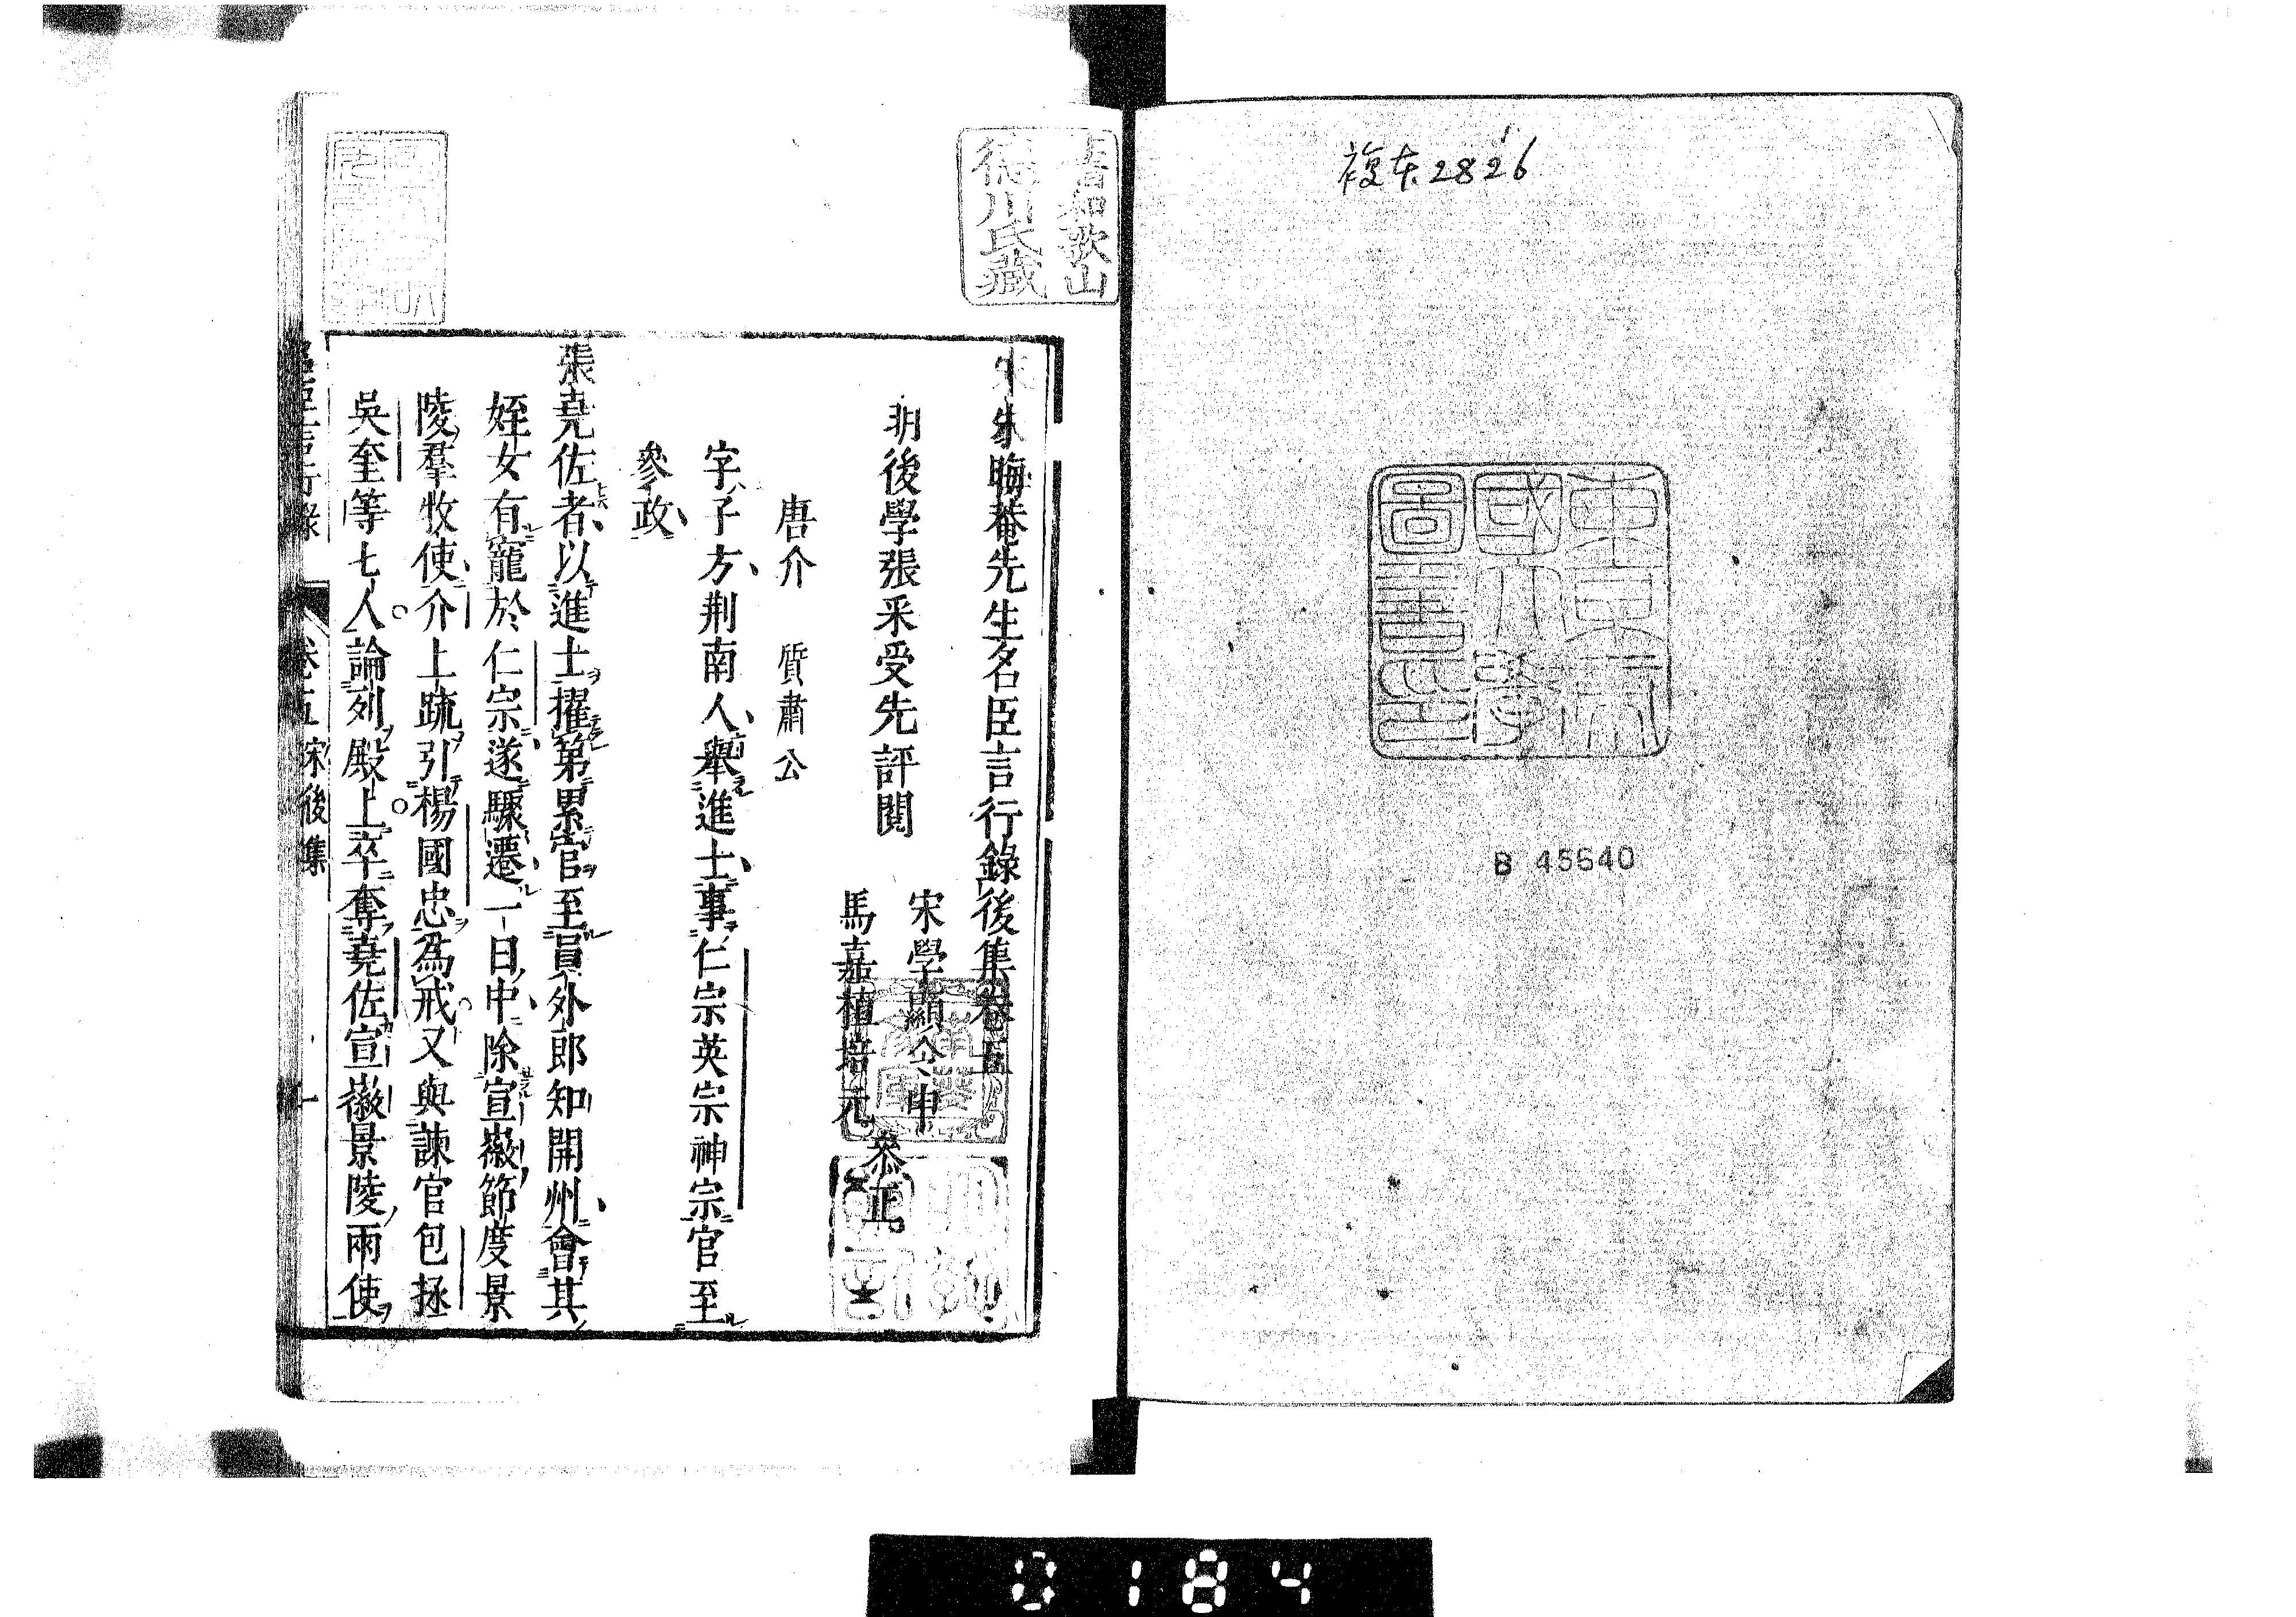 複本2826
東京帝
國大學
圖書印
B 45640
舊和歌山
德川氏藏
宋朱晦菴先生名臣言行錄後集卷五
明後學張采受先評閱
宋學顯令申
馬嘉植培元
叅正
唐介 質肅公
字子方荆南人舉進士事仁宗英宗神宗官至
參政
張堯佐者以進士擢第累官至員外郎知開州會其
姪女有寵於仁宗遂驟遷一日中除宣徽節度景
陵羣牧使介上疏引楊國忠為戒又與諫官包拯
吳奎等七人論列殿上卒奪堯佐宣徽景陵兩使
名臣言行錄 卷五 宋後集 一
0184